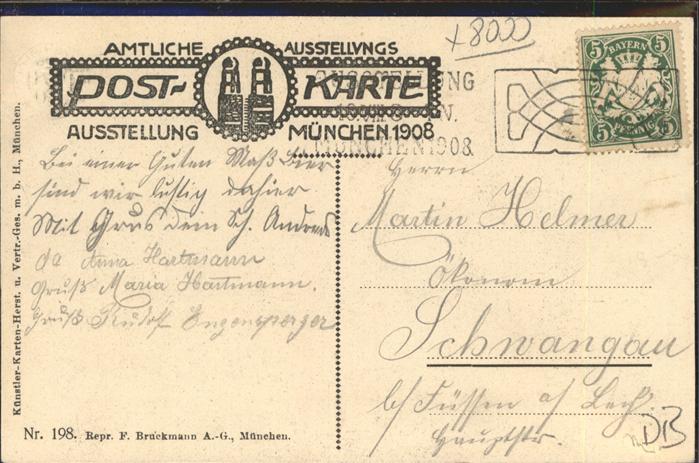 x8000
AMTLICHE AUSSTELLUNGS
POST-KARTE
AUSSTELLUNG MÜNCHEN 1908
AUSSTELLUNG
MÜNCHEN 1908
5 BAYERN 5
5 PFENNIG 5
Bei einer Guten Maß Bier
sind wir lustig dahier
Mit Grus dein Sch. Andreas
Anna Hartmann
Gruß Maria Hartmann.
Gruß Rudolf Engensperger
Herrn
Martin Helmer
Ökonom
Schwangau
b/ Füssen a/ Lech
Hauptstr.
DB
Künstler-Karten-Herst. u. Vertr.-Ges. m. b. H., München.
Nr. 198. Repr. F. Bruckmann A.-G., München.